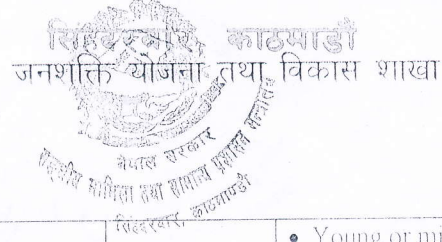 सिंहदरबार, काठमाडौं
जनशक्ति योजना तथा विकास शाखा
नेपाल सरकार
सङ्घीय मामिला तथा सामान्य प्रशासन मन्त्रालय
सिंहदरबार, काठमाण्डौ
• Young or